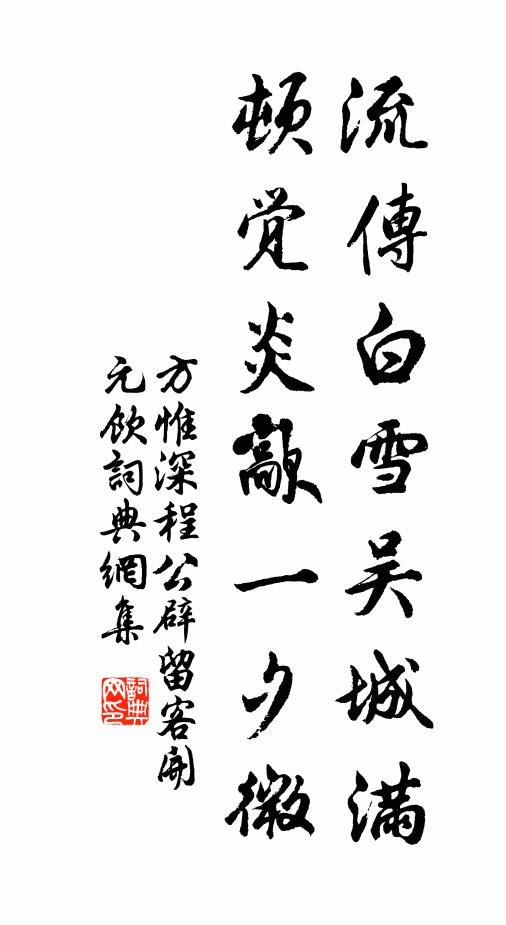 流傳白雪吴城滿
頓覺炎歊一夕微
方惟深程公辟留客開
元飲詞典網集
詞典
网印